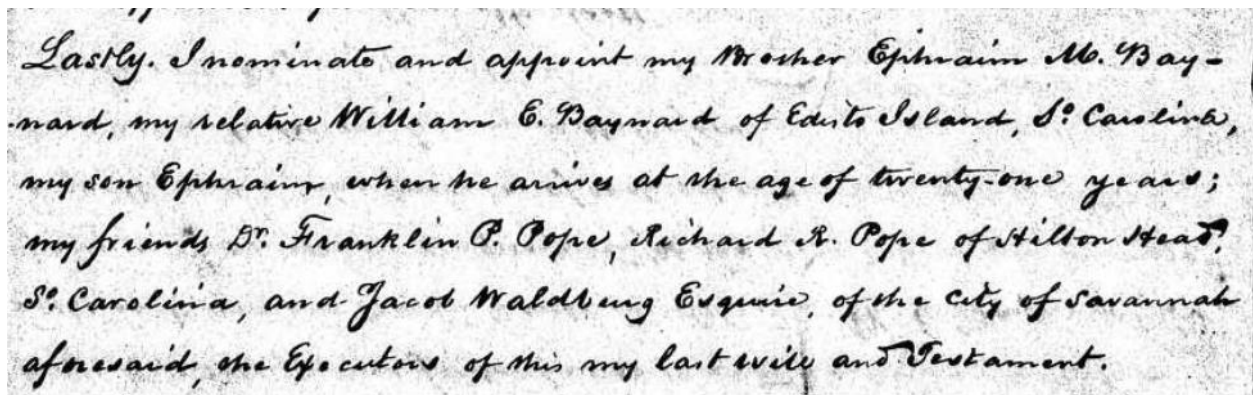 Lastly. I nominate and appoint my Brother Ephraim M. Bay-
nard, my relative William E. Baynard of Edisto Island, So. Carolina,
my son Ephraim, when he arrives at the age of twenty-one years;
my friends Dr. Franklin P. Pope, Richard R. Pope of Hilton Head,
So. Carolina, and Jacob Waldburg Esquire, of the city of Savannah
aforesaid, the Executors of this my last will and Testament.